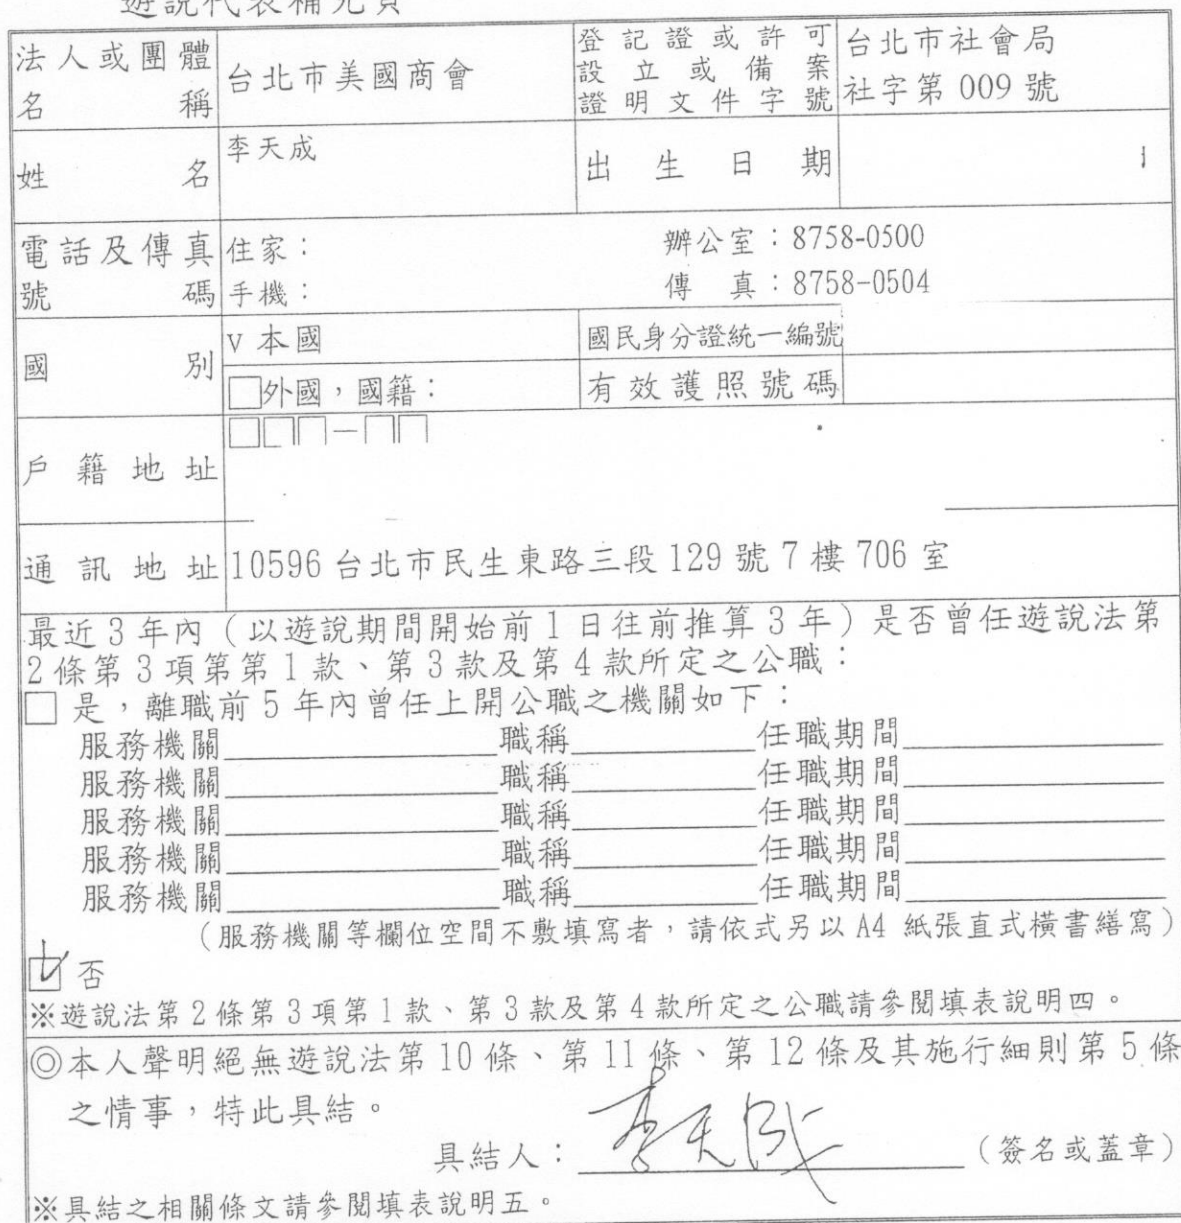 遊說代表補充頁
法人或團體名稱 台北市美國商會 登記證或許可設立或備案證明文件字號 台北市社會局
社字第 009 號
姓名 李天成 出生日期
電話及傳真號碼 住家： 辦公室：8758-0500
手機： 傳真：8758-0504
國別 V 本國 國民身分證統一編號
□外國，國籍： 有效護照號碼
戶籍地址 □□□－□□
通訊地址 10596 台北市民生東路三段 129 號 7 樓 706 室
最近 3 年內（以遊說期間開始前 1 日往前推算 3 年）是否曾任遊說法第
2 條第 3 項第第 1 款、第 3 款及第 4 款所定之公職：
□ 是，離職前 5 年內曾任上開公職之機關如下：
服務機關 職稱 任職期間
服務機關 職稱 任職期間
服務機關 職稱 任職期間
服務機關 職稱 任職期間
服務機關 職稱 任職期間
（服務機關等欄位空間不敷填寫者，請依式另以 A4 紙張直式橫書繕寫）
☑ 否
※遊說法第 2 條第 3 項第 1 款、第 3 款及第 4 款所定之公職請參閱填表說明四。
◎本人聲明絕無遊說法第 10 條、第 11 條、第 12 條及其施行細則第 5 條
之情事，特此具結。
具結人：李天成（簽名或蓋章）
※具結之相關條文請參閱填表說明五。